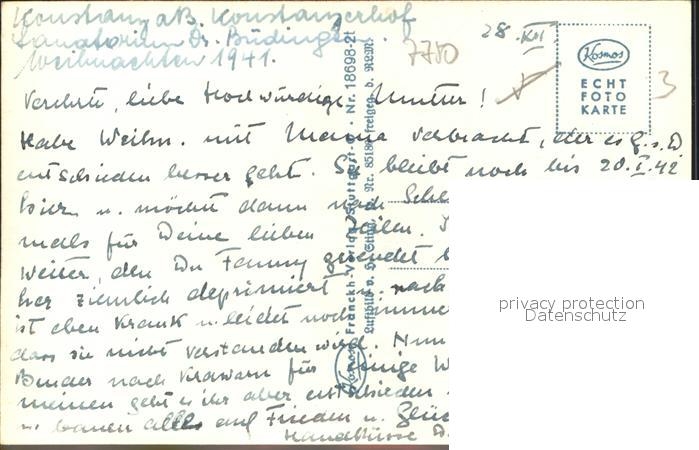 Konstanz a B. Konstanzerhof
Sanatorium Dr. Büdingen
Weihnachten 1941.
28. XII
7750
3
Kosmos
ECHT
FOTO
KARTE
Verehrte, liebe Hochwürdige Mutter!
Habe Weihn. mit Mama verbracht, der es G. s. D
entschieden besser geht. Sie bleibt noch bis 20. I. 42
hier u. möchte dann nach
mals für Deine lieben Zeilen.
weiter, den Du Fanny gesendet
her ziemlich deprimiert u. nach
ist eben krank u. leidet noch immer
dass sie nicht verstanden wird. Nun
Bruder nach Krawarn für einige W
meinen geht es ihr aber entschieden
u. bauen alles auf Frieden u. Glück
Handküsse D.
Kosmos Franckh-Verlag Stuttgart-O · Nr. 18698-2t
Luftbild v. Nr. 85180 freigeg. d. RLM
privacy protection
Datenschutz